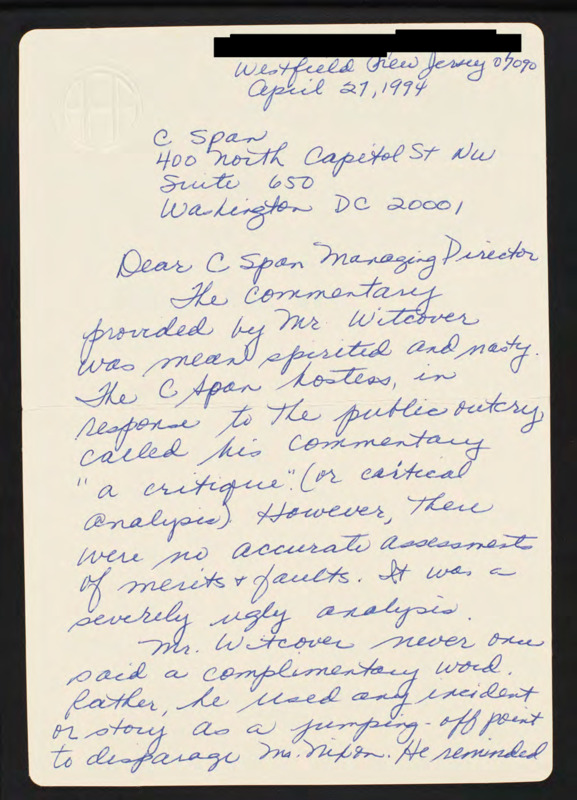 Westfield New Jersey 07090
April 27, 1994
C Span
400 North Capitol St NW
Suite 650
Washington DC 20001
Dear C Span Managing Director
The commentary
provided by Mr Witcover
was mean spirited and nasty.
The C Span hostess, in
response to the public outcry
called his commentary
"a critique". (or critical
analysis) However, there
were no accurate assessments
of merits & faults. It was a
severely ugly analysis.
Mr. Witcover never once
said a complimentary word.
Rather, he used any incident
or story as a jumping-off point
to disparage Mr. Nixon. He reminded